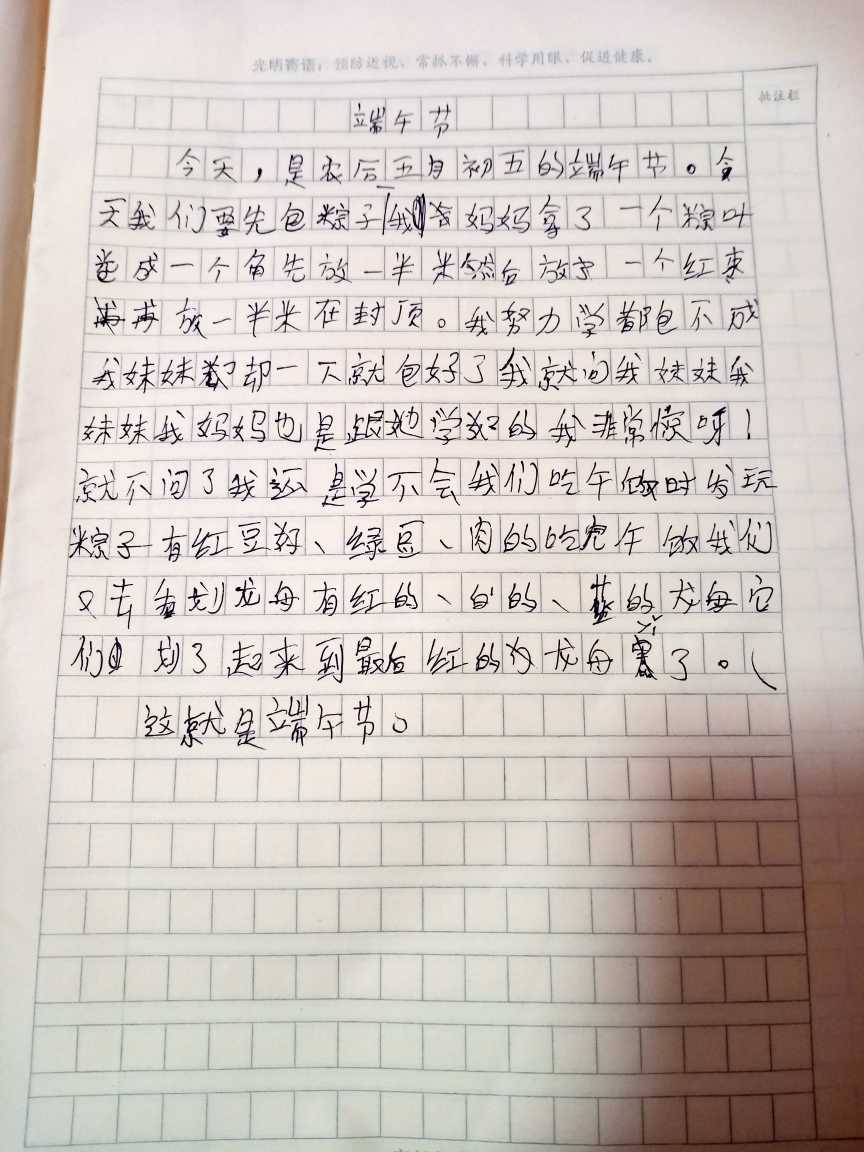 光明寄语：预防近视、常抓不懈、科学用眼、促进健康。
批注栏
端午节
今天，是农后五月初五的端午节。今
天我们要先包粽子我看妈妈拿了一个粽叶
卷成一个角先放一半米然后放 一个红枣
再放一半米在封顶。我努力学都包不成
我妹妹却一下就包好了我就问我妹妹我
妹妹我妈妈也是跟她学的我非常惊呀！
就不问了我还是学不会我们吃午饭时发现
粽子有红豆、绿豆、肉的吃完午饭我们
又去看划龙舟有红的、白的、蓝的龙舟它
们 划了起来到最后红的 龙舟赢了。
这就是端午节。